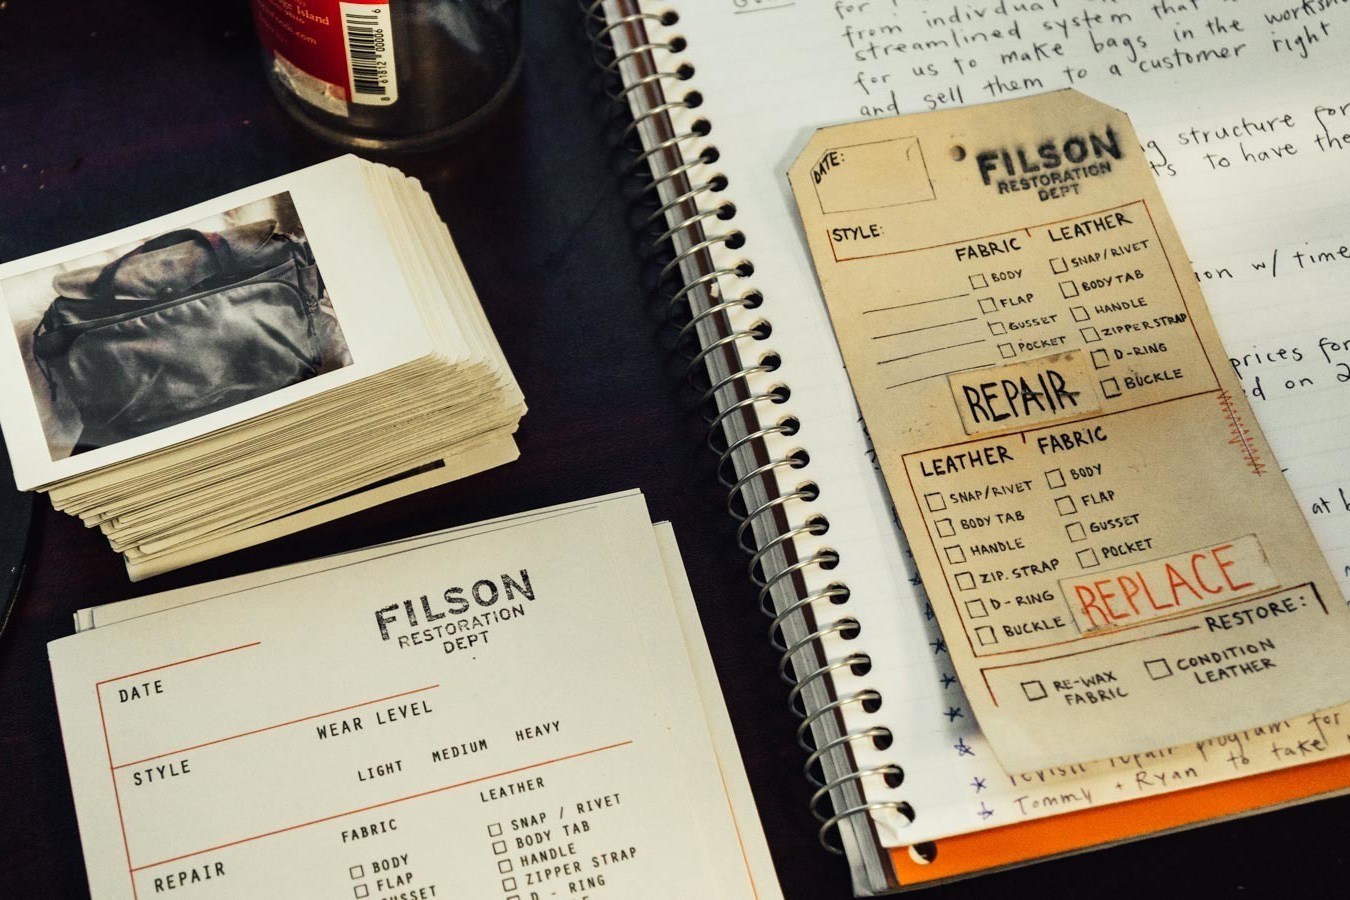 Island
.com
8 61812 00006 6
for
from individual
streamlined system that
for us to make bags in the
and sell them to a customer right
structure for
to have the
w/ time
prices for
on 2
at
revisit repair program for
Tommy + Ryan to take
DATE:
FILSON
RESTORATION
DEPT
STYLE:
FABRIC
LEATHER
BODY
FLAP
GUSSET
POCKET
SNAP/RIVET
BODY TAB
HANDLE
ZIPPER STRAP
D-RING
BUCKLE
REPAIR
LEATHER
FABRIC
SNAP/RIVET
BODY TAB
HANDLE
ZIP. STRAP
D-RING
BUCKLE
BODY
FLAP
GUSSET
POCKET
REPLACE
RESTORE:
RE-WAX
FABRIC
CONDITION
LEATHER
FILSON
RESTORATION
DEPT
DATE
WEAR LEVEL
STYLE
LIGHT MEDIUM HEAVY
REPAIR
FABRIC
BODY
FLAP
GUSSET
LEATHER
SNAP / RIVET
BODY TAB
HANDLE
ZIPPER STRAP
D - RING